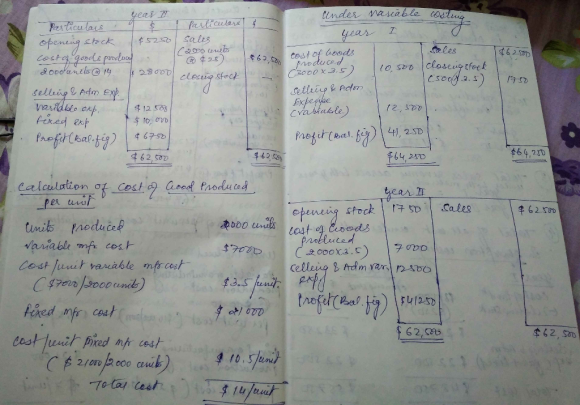 year II
Particulars $ Particulars $
opening stock $5250 Sales
(2500 units
@ $25) $62,500
cost of goods produced
2000 units @ 14 28000 closing stock —
Selling & Adm Exp.
Variable exp. $12,500
fixed exp $10,000
Profit (Bal. fig) $6750
$62,500 $62,500
Calculation of Cost of Good Produced
per unit
Units produced 2000 units
Variable mfr cost $7000
Cost/unit variable mfr cost
($7000/2000 units) $3.5/unit
Fixed mfr cost $21000
Cost/unit fixed mfr cost
($21000/2000 units) $10.5/unit
Total cost $14/unit
Under Variable Costing
year I
Cost of Goods
produced
(3000 x 3.5) 10,500 Sales $62,500
closing stock
(500 x 3.5) 1750
Selling & Adm
Expense
(variable) 12,500
Profit (Bal. fig) 41,250
$64,250 $64,250
year II
opening stock 1750 Sales $62,500
Cost of Goods
produced
(2000 x 3.5) 7000
Selling & Adm var.
exp 12500
Profit (Bal. fig) $41250
$62,500 $62,500